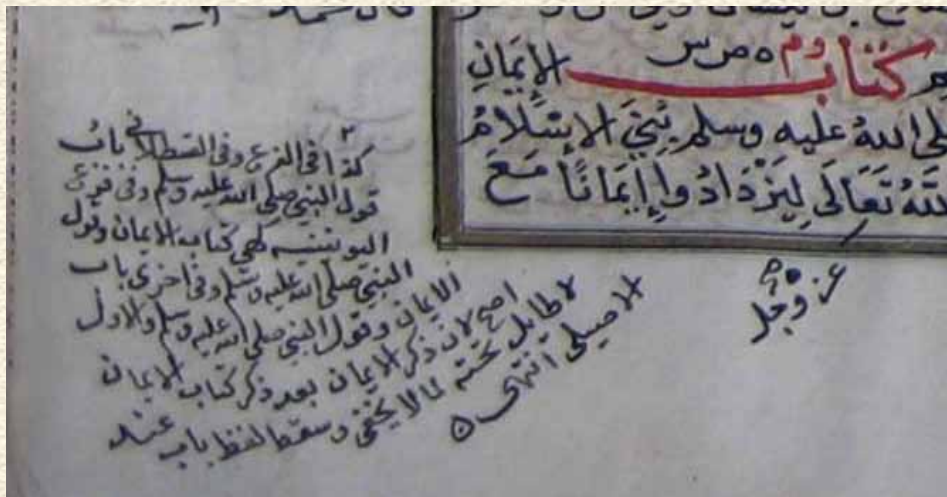 كتاب الإيمان
صلى الله عليه وسلم بُنِيَ الإِسْلَامُ
تَعَالَى لِيَزْدَادُوا إِيمَانًا مَعَ
عز وجل
كذا في الفرع وفي القسطلاني باب
قول النبي صلى الله عليه وسلم وفي فرع
اليونينيه كهي كتاب الايمان وقول
النبي صلى الله عليه وسلم وفي اخرى باب
الايمان وقول النبي صلى الله عليه وسلم والاول
اصح لان ذكر الايمان بعد ذكر كتاب الايمان
لا طايل تحته لما لا يخفى وسقط لفظ باب عند
الاصيلى انتهى